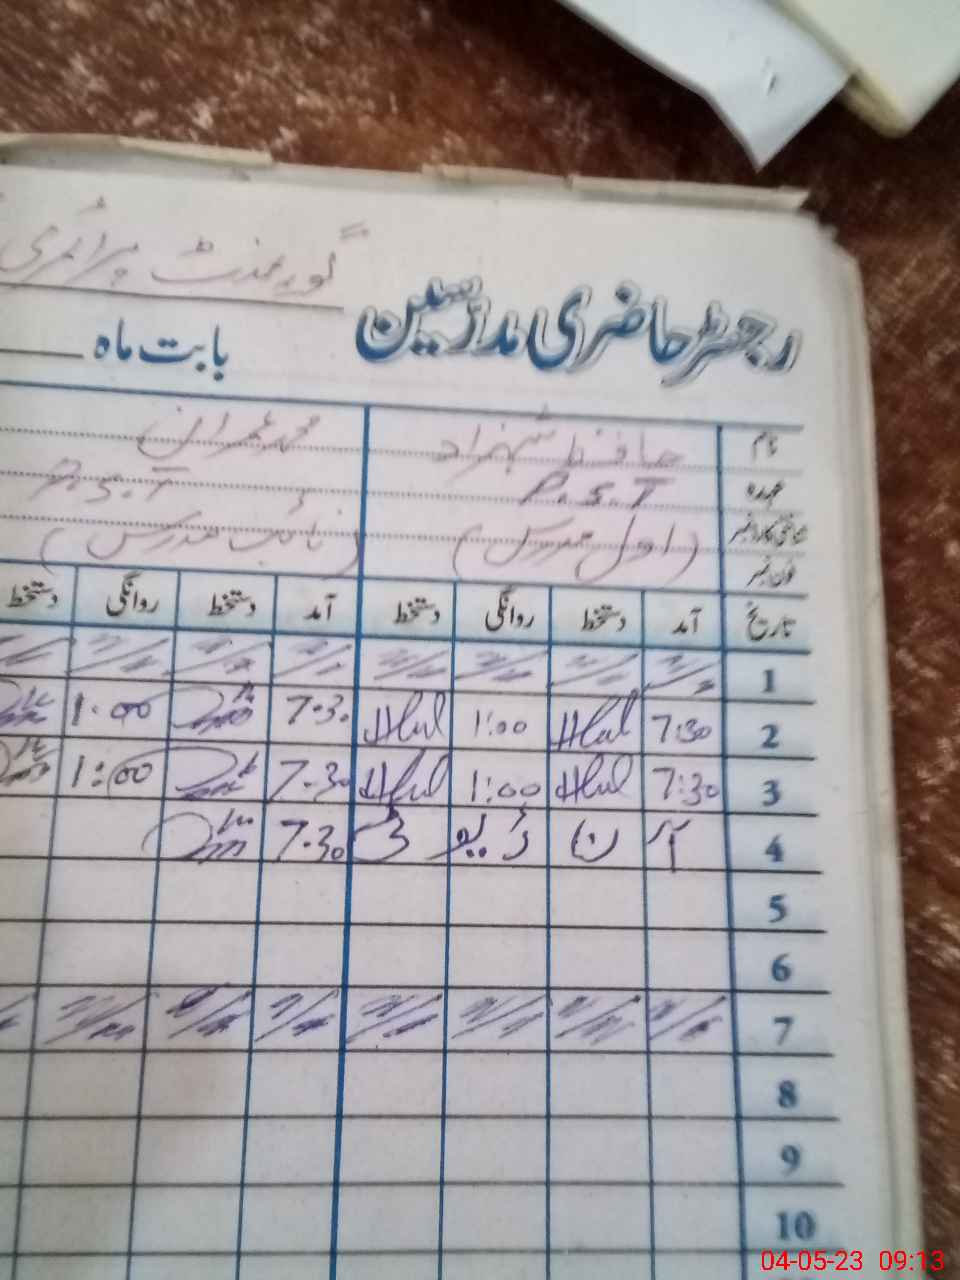 گورنمنٹ پرائمری
رجسٹر حاضری مدرسین
بابت ماہ
نام حافظ شہزاد محمد عمران
عہدہ P.S.T P.S.T
شناختی کارڈ نمبر (اول مدرس) (نائب مدرس)
فون نمبر
تاریخ آمد دستخط روانگی دستخط آمد دستخط روانگی دستخط
1
2 7:30 1:00 7:30 1:00
3 7:30 1:00 7:30 1:00
4 آن ڈیوٹی 7:30
5
6
7
8
9
10
04-05-23 09:13